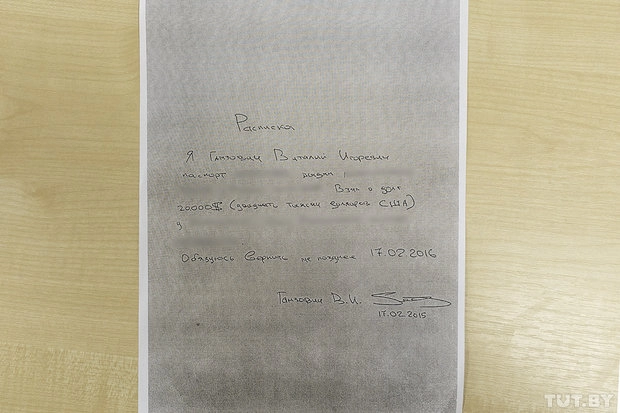 Расписка
Я Ганзович Виталий Игоревич
паспорт выдан
Взял в долг
20000$ (двадцать тысяч долларов США)
у
Обязуюсь вернуть не позднее 17.02.2016
Ганзович В.И.
17.02.2015
TUT.BY